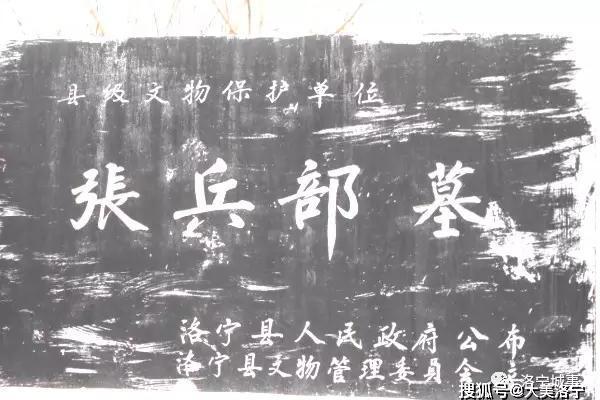 县级文物保护单位
張兵部墓
洛宁县人民政府公布
洛宁县文物管理委員会
洛宁城事
搜狐号@大美洛宁